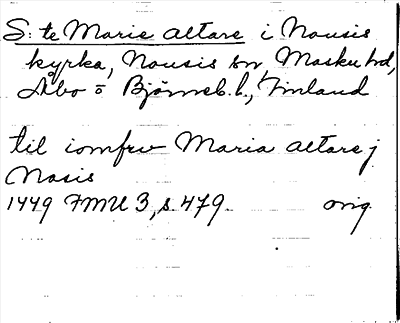 S:te Marie altare i Nousis
kyrka, Nousis sn Masku hd,
Åbo o Björneb. l., Finland
til iomfrv Maria altare j
Nosis
1449 FMU 3, s. 479. orig